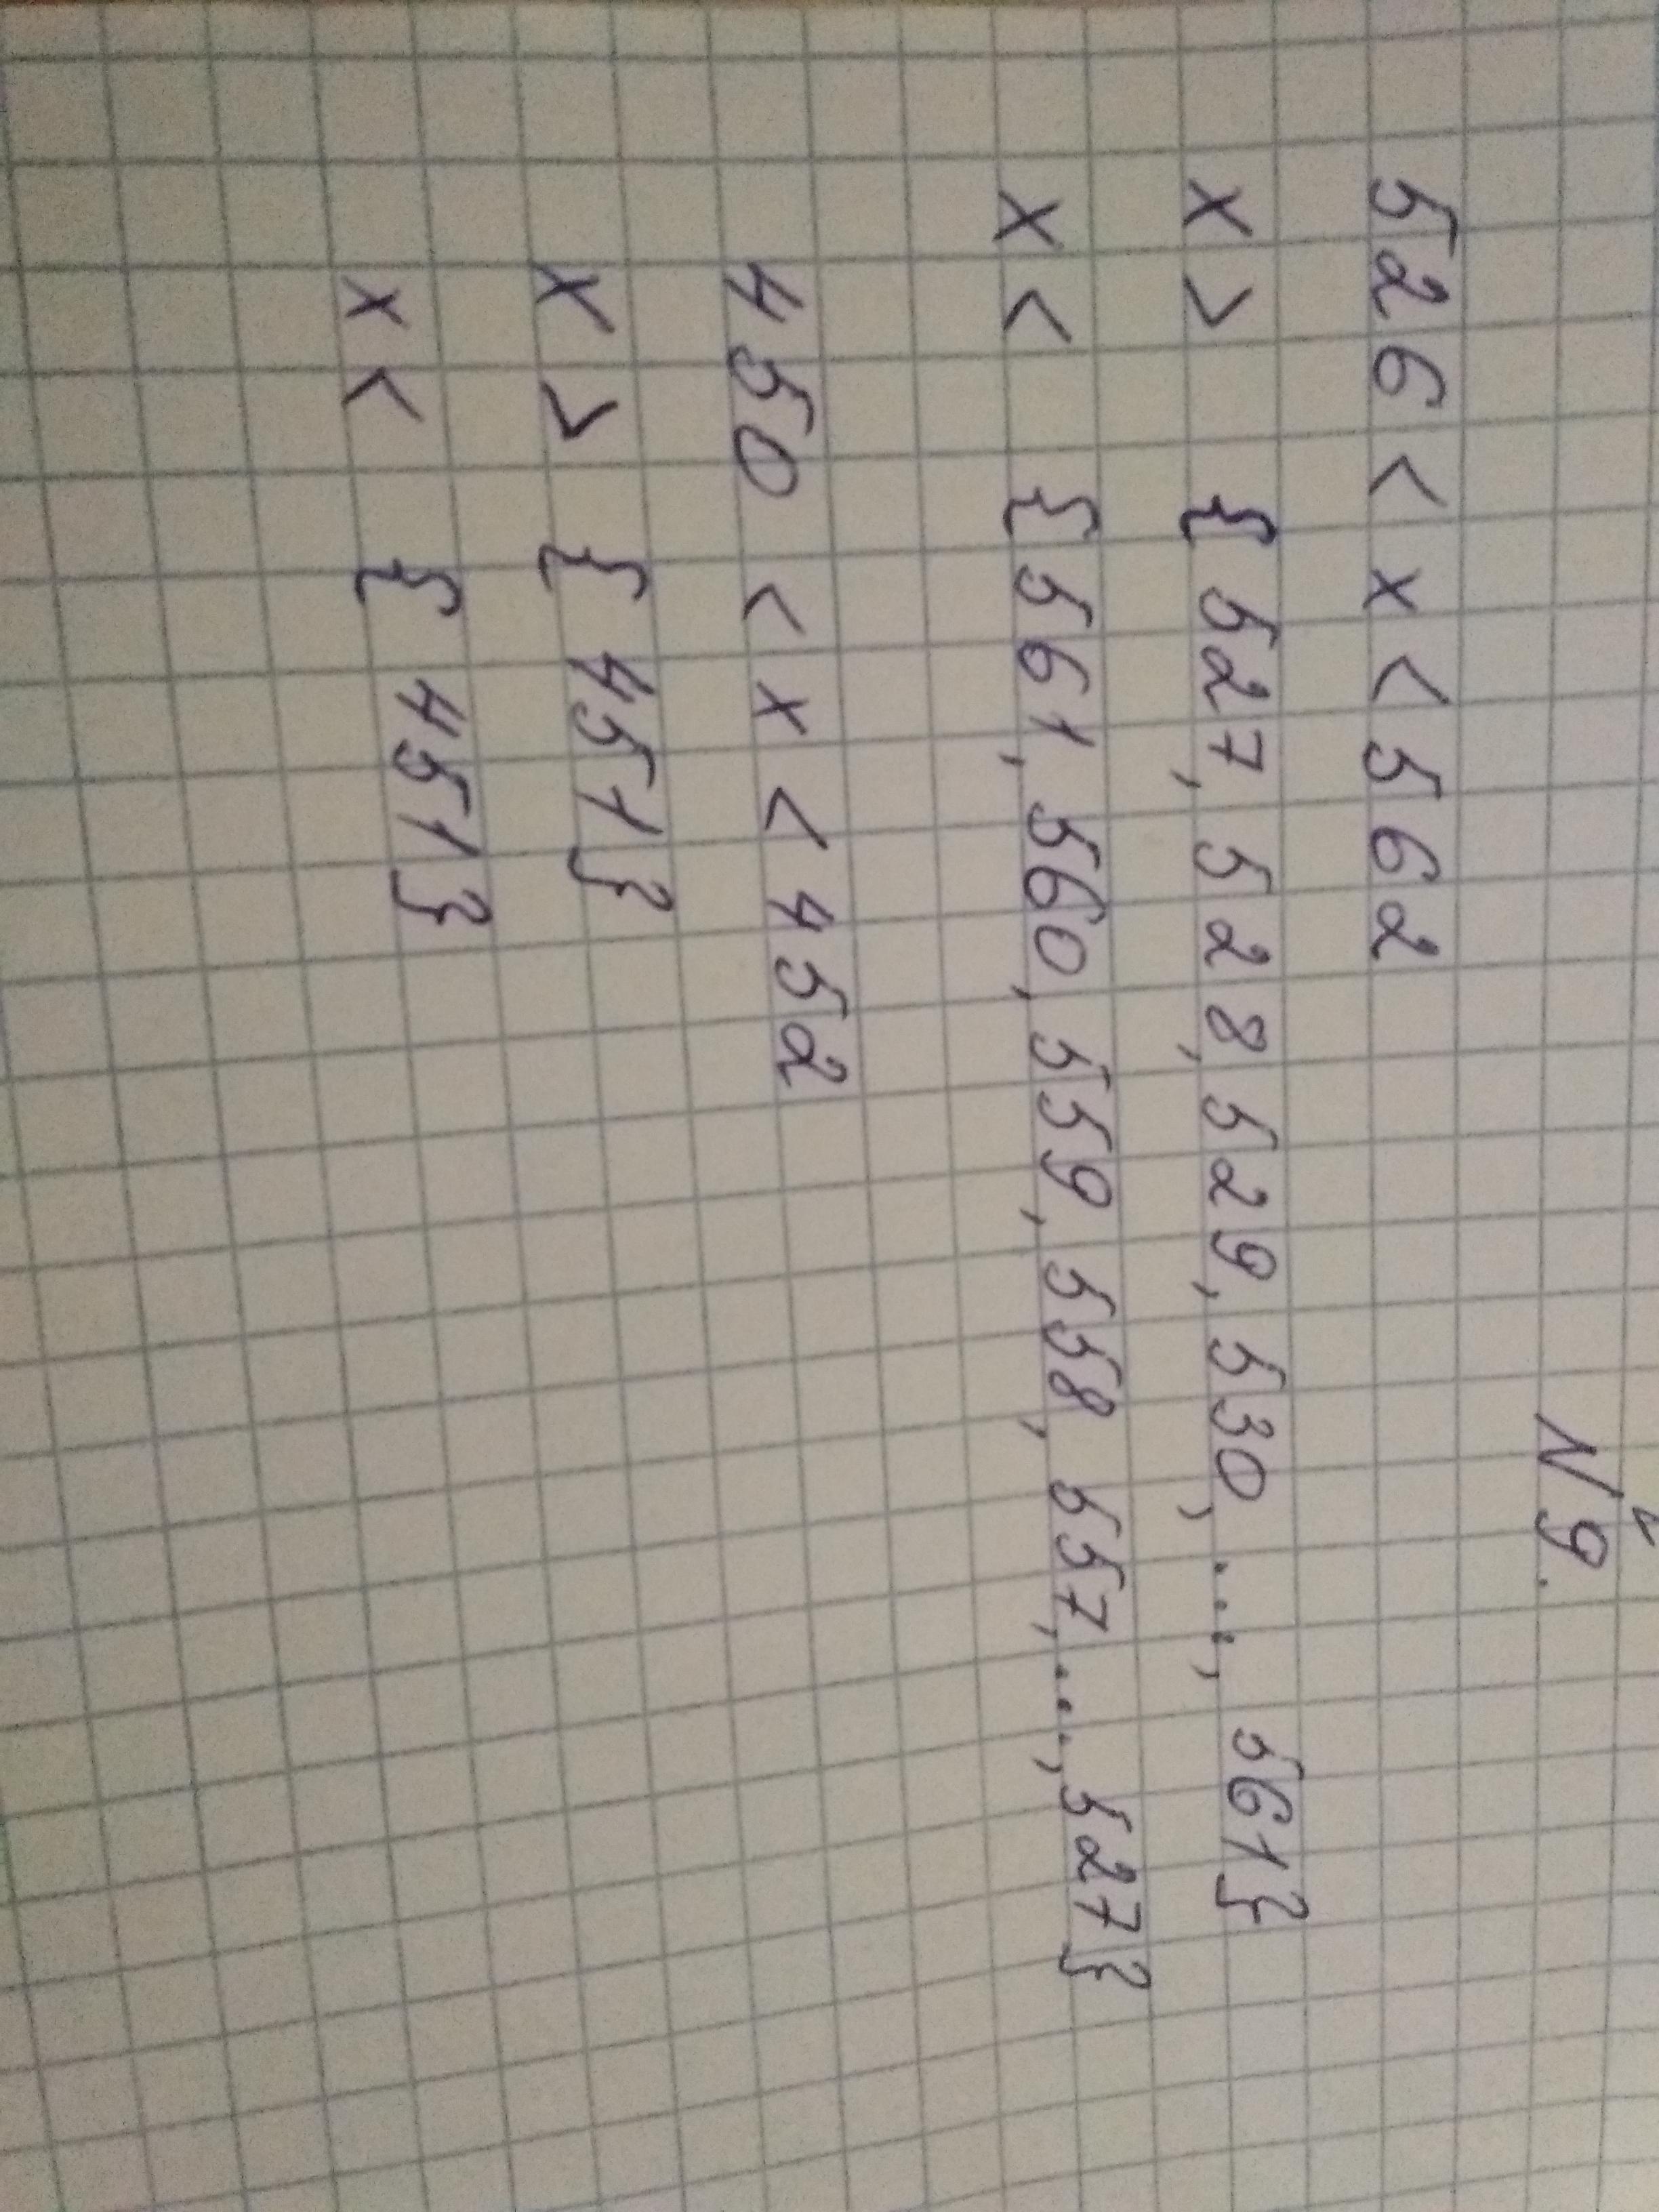 N 9.
526 < x < 562
x > { 527, 528, 529, 530, ..., 561}
x < { 561, 560, 559, 558, 557, ..., 527}
450 < x < 452
x > { 451}
x < { 451}